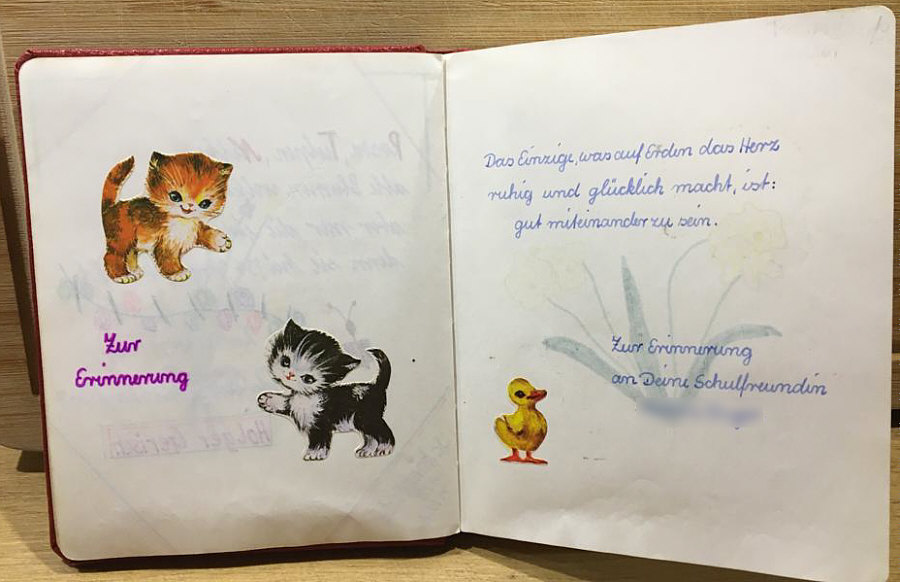 Zur
Erinnerung
Das Einzige, was auf Erden das Herz
ruhig und glücklich macht, ist:
gut miteinander zu sein.
Zur Erinnerung
an Deine Schulfreundin